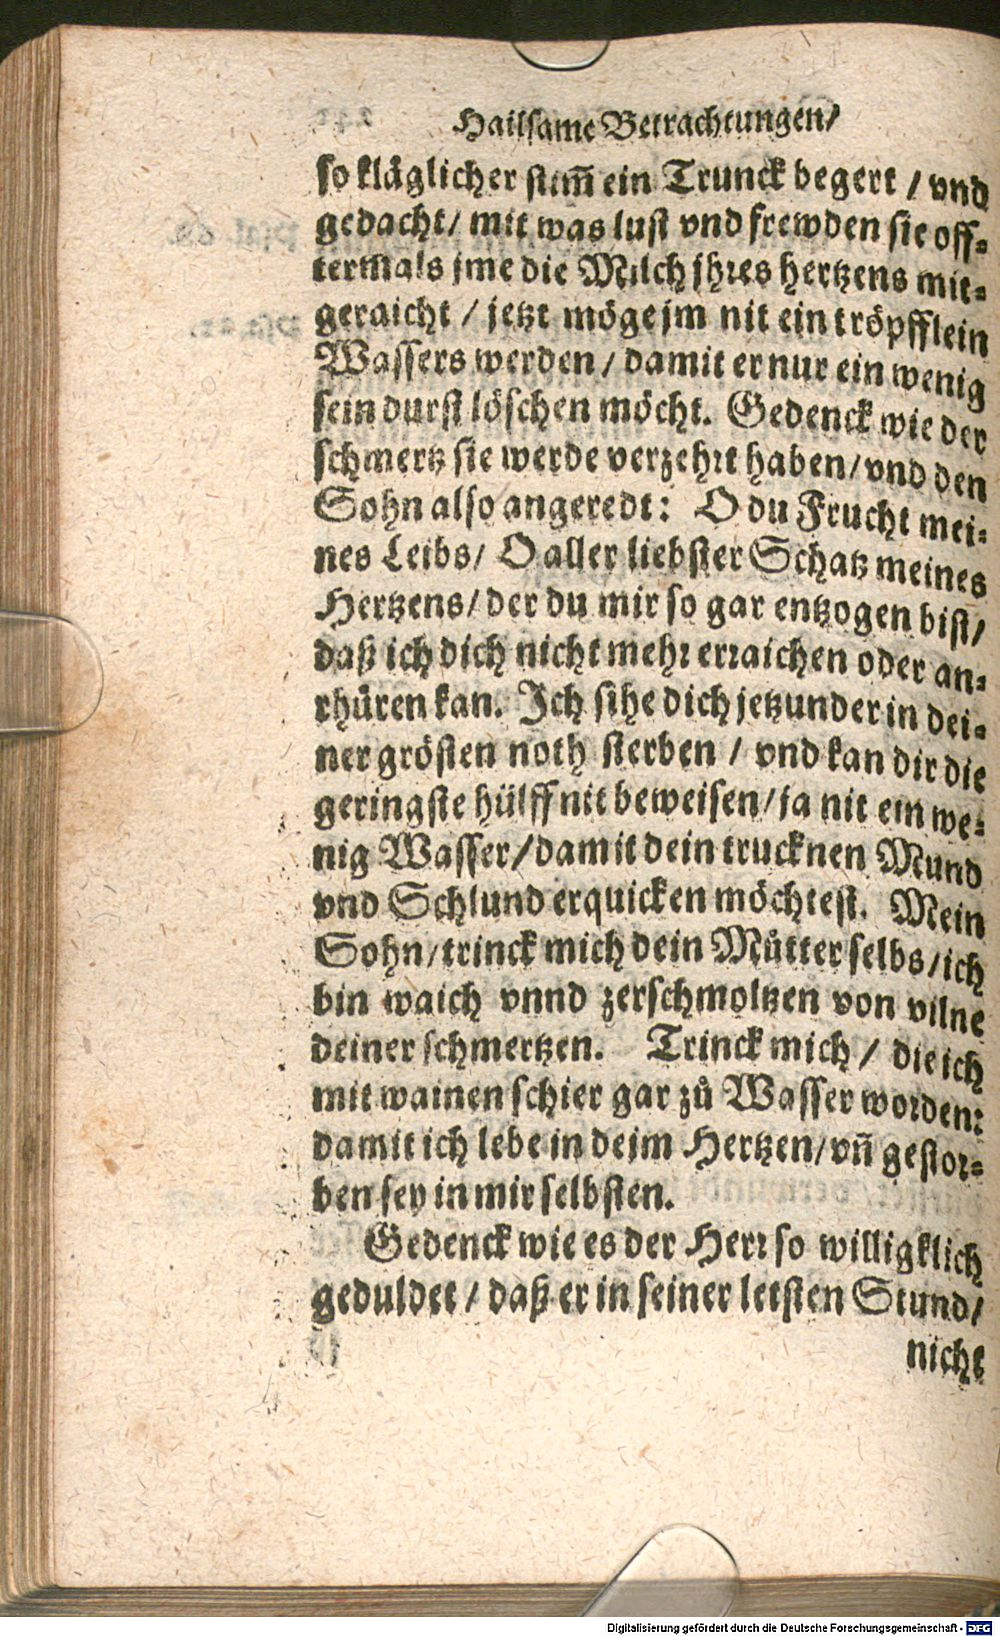 Hailsame Betrachtungen/
so kläglicher stim̃ ein Trunck begert / vnd
gedacht/ mit was lust vnd frewden sie off-
termals jme die Milch jhres hertzens mit-
geraicht / jetzt möge jm nit ein tröpfflein
Wassers werden / damit er nur ein wenig
sein durst löschen möcht. Gedenck wie der
schmertz sie werde verzehrt haben/ vnd den
Sohn also angeredt: O du Frucht mei-
nes Leibs/ O aller liebster Schatz meines
Hertzens/ der du mir so gar entzogen bist/
daß ich dich nicht mehr erraichen oder an-
rhüren kan. Ich sihe dich jetzunder in dei-
ner grösten noth sterben / vnd kan dir die
geringste hülff nit beweisen/ ja nit ein we-
nig Wasser/ damit dein trucknen Mund
vnd Schlund erquicken möchtest. Mein
Sohn/ trinck mich dein Můtter selbs/ ich
bin waich vnnd zerschmoltzen von vilne
deiner schmertzen. Trinck mich / die ich
mit wainen schier gar zů Wasser worden:
damit ich lebe in deim Hertzen/ vñ gestor-
ben sey in mir selbsten.
Gedenck wie es der Herr so willigklich
geduldet / daß er in seiner letsten Stund/
nicht
Digitalisierung gefördert durch die Deutsche Forschungsgemeinschaft - DFG